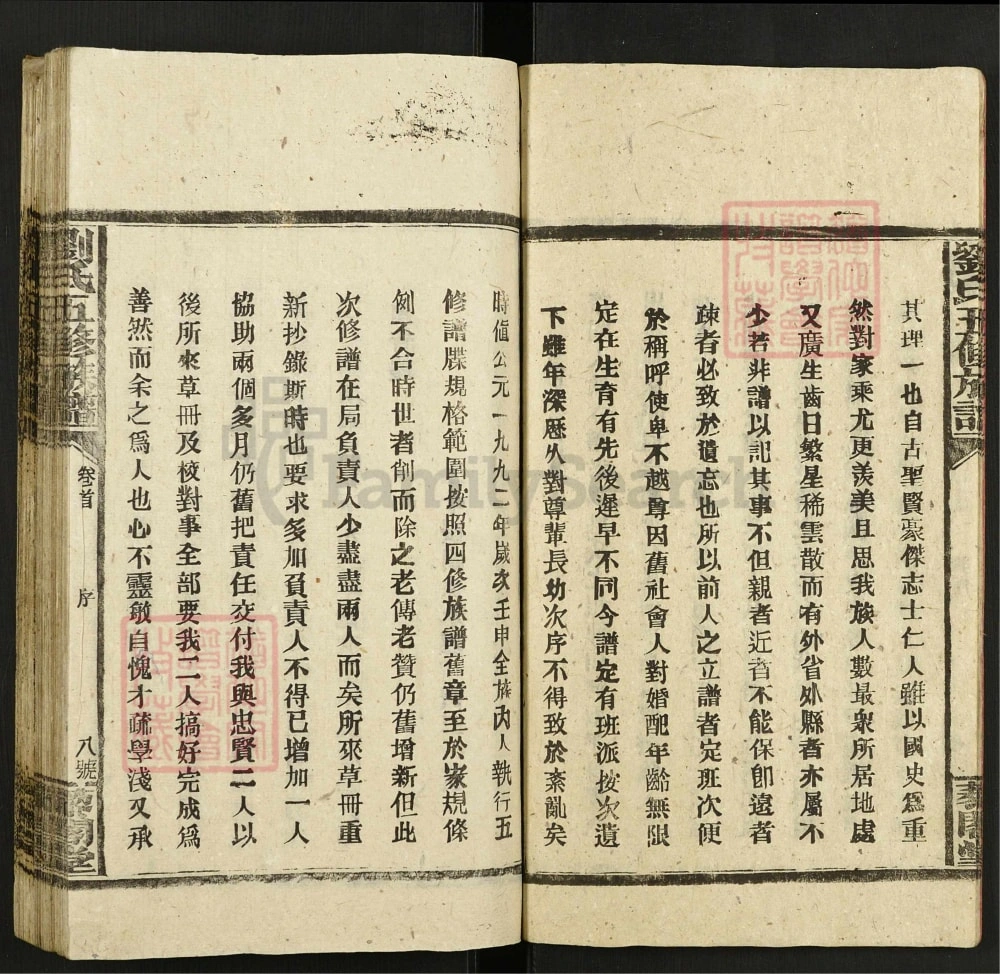 劉氏五修族譜
其理一也自古聖賢豪傑志士仁人雖以國史爲重
然對家乘尤更羨美且思我族人數最衆所居地處
又廣生齒日繁星稀雲散而有外省外縣者亦屬不
少若非譜以記其事不但親者近者不能保卽遠者
疎者必致於遺忘也所以前人之立譜者定班次便
於稱呼使卑不越尊因舊社會人對婚配年齡無限
定在生育有先後遲早不同今譜定有班派按次遺
下雖年深歷久對尊輩長幼次序不得致於紊亂矣
時値公元一九九二年歲次壬申全族內人執行五
修譜牒規格範圍按照四修族譜舊章至於家規條
例不合時世者削而除之老傳老贊仍舊增新但此
次修譜在局負責人少盡盡兩人而矣所來草冊重
新抄錄斯時也要求多加負責人不得已增加一人
協助兩個多月仍舊把責任交付我與忠賢二人以
後所來草冊及校對事全部要我二人搞好完成爲
善然而余之爲人也心不靈敏自愧才疏學淺又承
劉氏五修族譜
卷首
序
八號
藜閣堂
FamilySearch